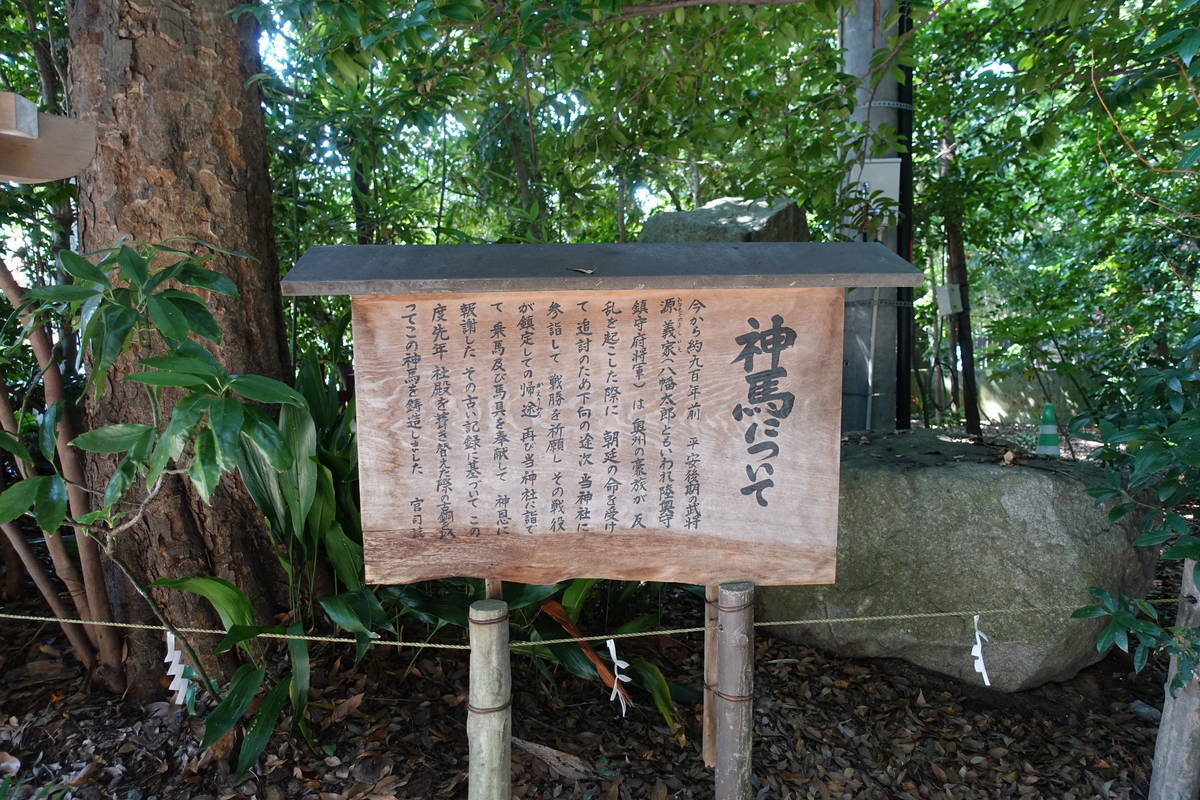 神馬について
今から約九百年前 平安後期の武将
源義家(八幡太郎ともいわれ陸奥守
鎮守府将軍)は 奥州の豪族が 反
乱を起こした際に 朝廷の命を受け
て追討のため下向の途次 当神社に
参詣して 戦勝を祈願し その戦役
が鎮定しての帰途 再び当神社に詣で
て 乗馬及び馬具を奉献して 神恩に
報謝した その古い記録に基づいて この
度先年 社殿を葺き替えた際の古銅
ってこの神馬を鋳造しました 宮司